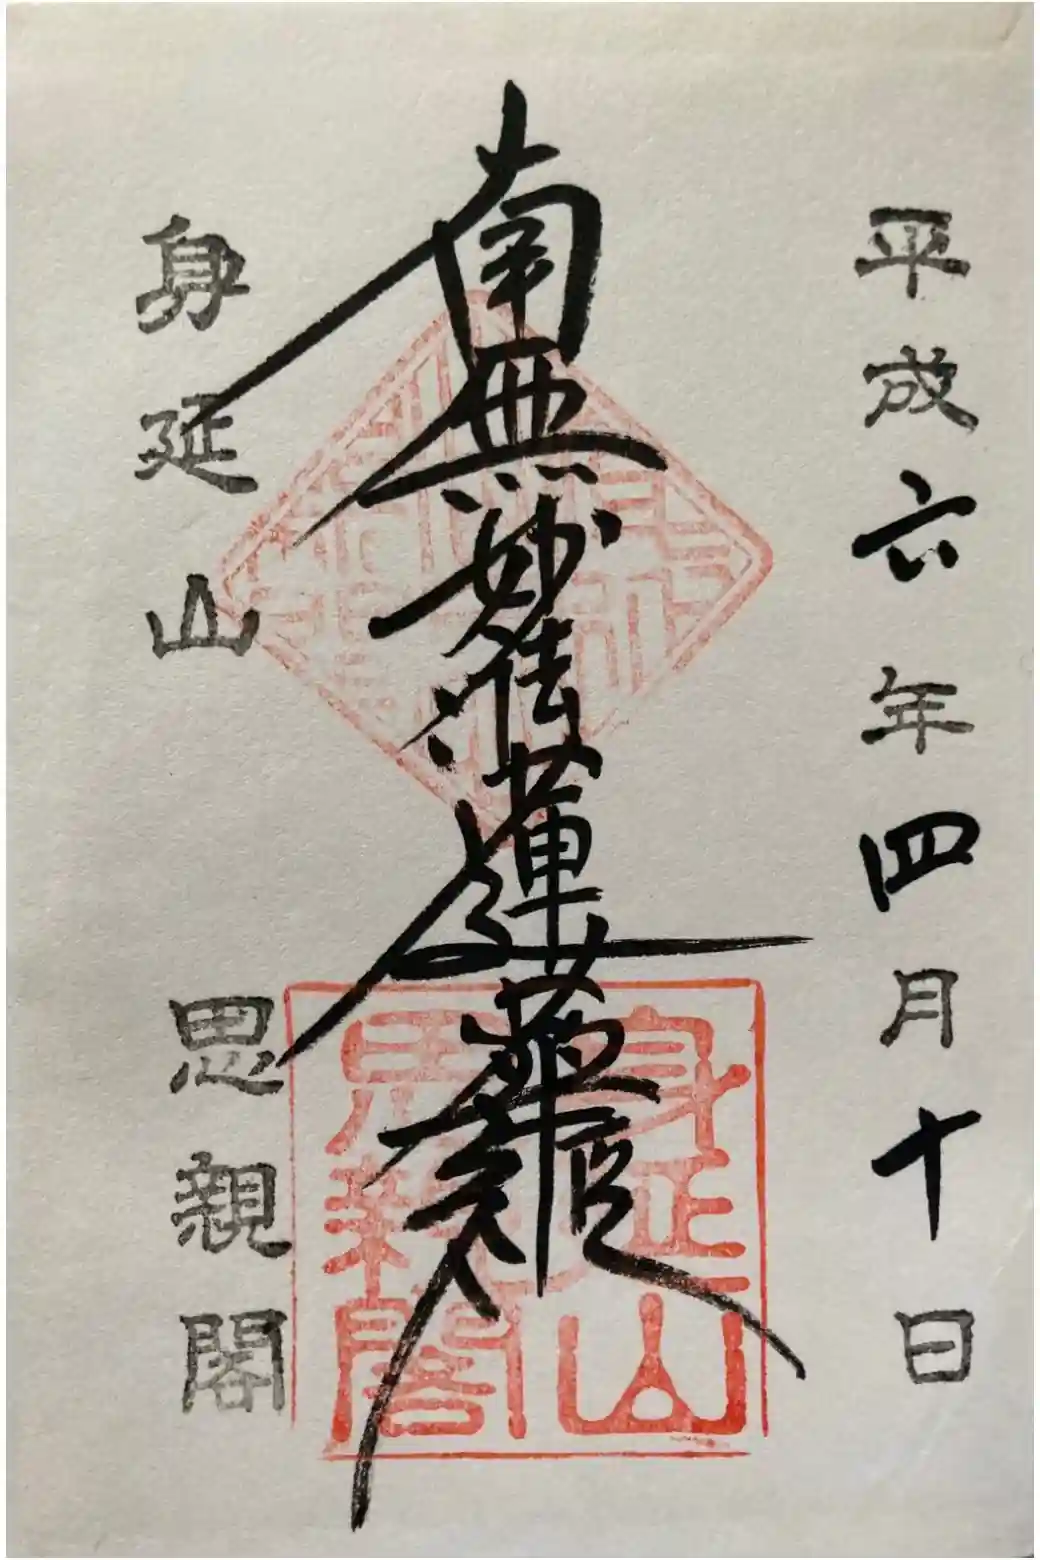 平成六年四月十日
南無妙法蓮華経
身延山 思親閣
身延山
思親閣